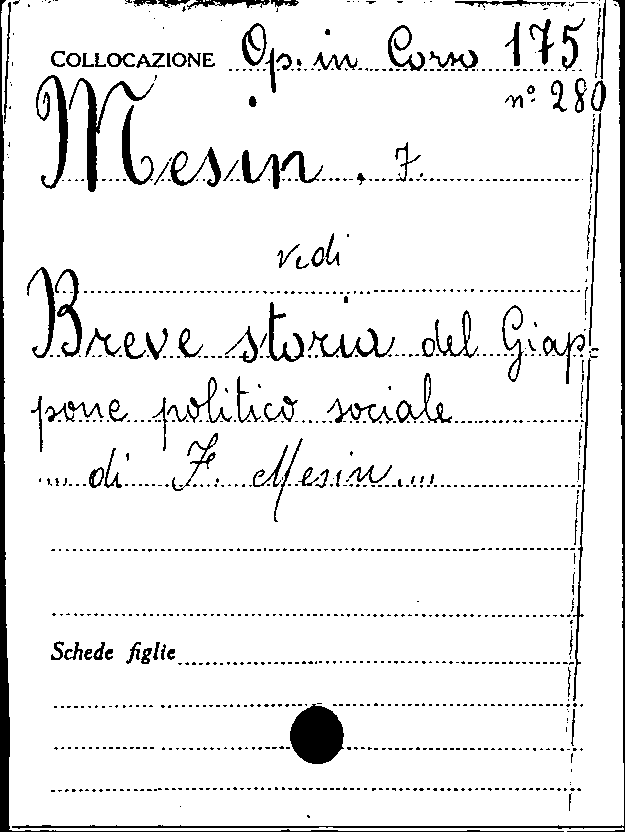 COLLOCAZIONE Op. in Corso 175
n° 280
Mesin, F.
vedi
Breve storia del Giap-
pone politico sociale
.... di F. Mesin....
Schede figlie